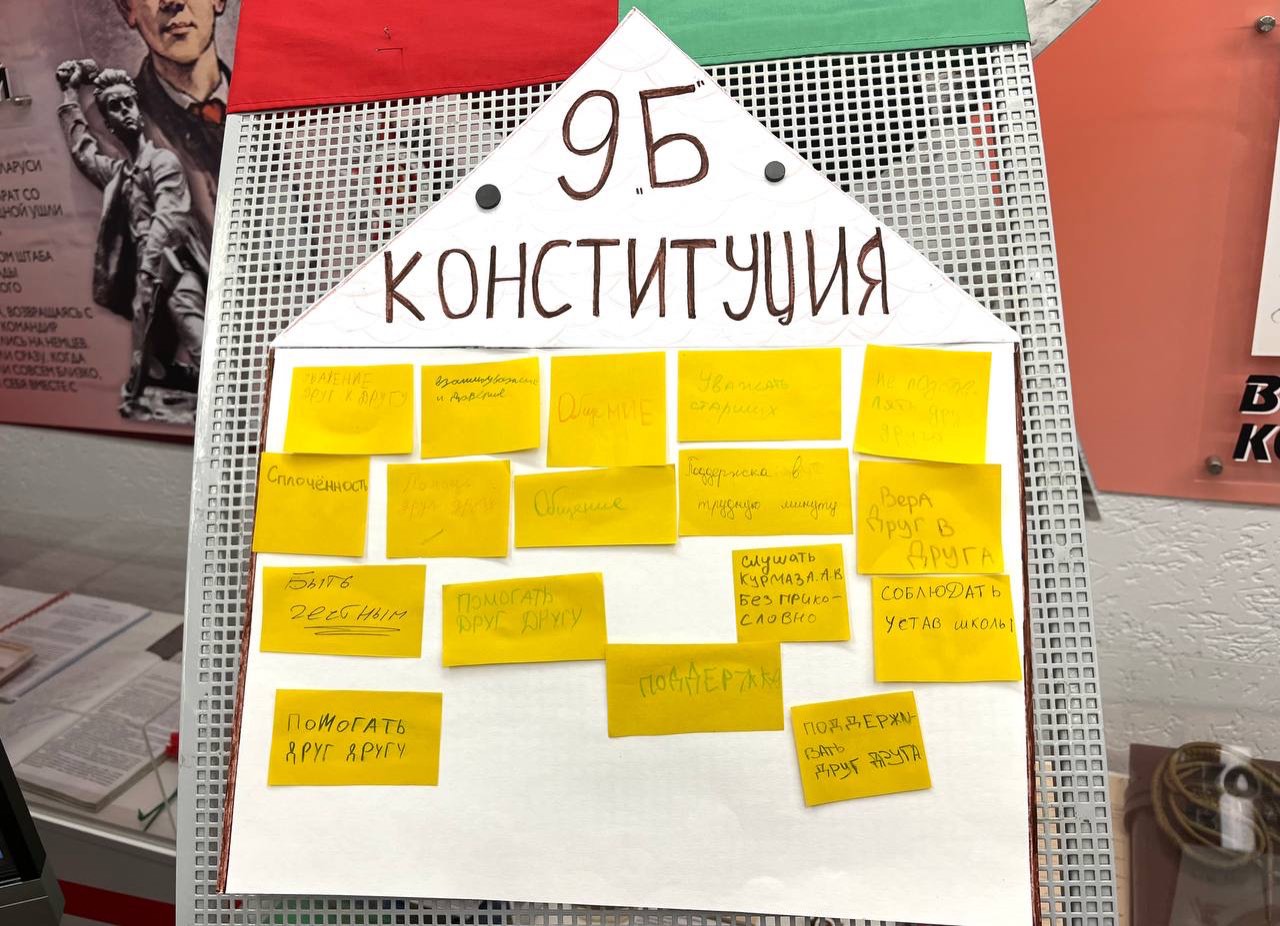 ЛАРУСИ
РАТ СО
ДНОЙ УШЛИ
ОМ ШТАБА
АДЫ
КОГО
, ВОЗВРАЩАЯСЬ С
КОМАНДИР
ЛИСЬ НА НЕМЦЕВ.
И СРАЗУ. КОГДА
И СОВСЕМ БЛИЗКО,
СЕБЯ ВМЕСТЕ С
9 „Б"
КОНСТИТУЦИЯ
ДРУГ К ДРУГУ
Взаимоуважение
и доверие
ОбщеНИЕ
Уважать
старших
Не
Сплочённость
Помощь
друг другу
Общение
Поддержка в
трудную минуту
ВЕРА
ДРУГ В
ДРУГА
БЫТЬ
честным
ПОМОГАТЬ
ДРУГ ДРУГУ
СЛУШАТЬ
КУРМАЗА.А.В
БЕЗ ПРИКО-
СЛОВНО
СОБЛЮДАТЬ
УСТАВ ШКОЛЫ
ПОДДЕРЖКА
ПОМОГАТЬ
ДРУГ ДРУГУ
ПОДДЕРЖИ-
ВАТЬ
ДРУГ ДРУГА